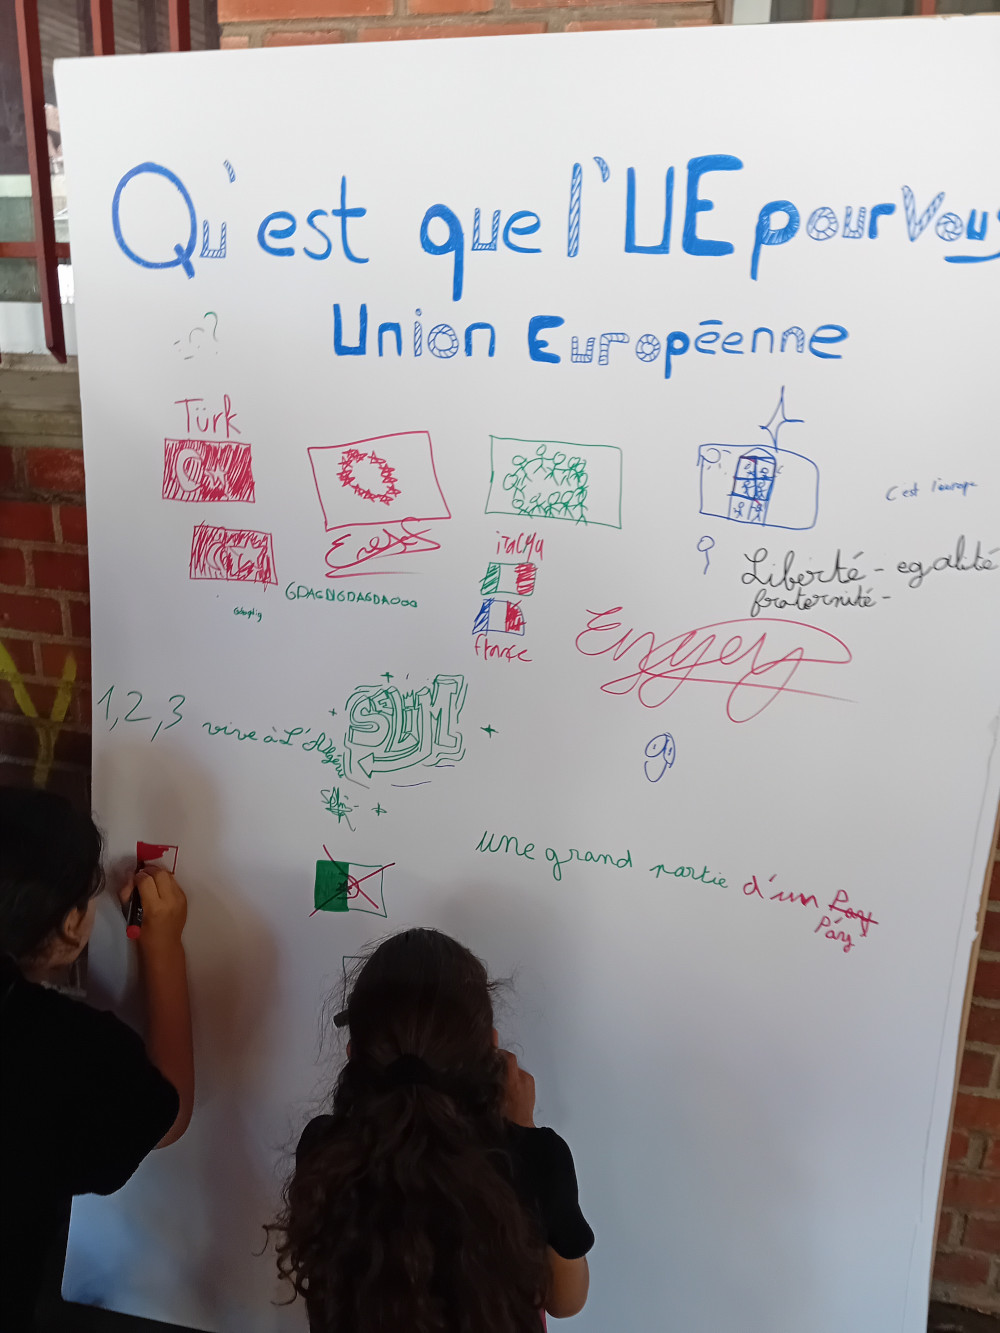 Qu'est que l'UE pour Vous
Union Européenne
Türk
C'est l'europe
iTaLYa
Liberté - egalité
fraternité -
GDAGDIGDAGDAOOO
france
1, 2, 3 vive à L'Algérie
SELIM
une grand partie d'un Pay
Pay